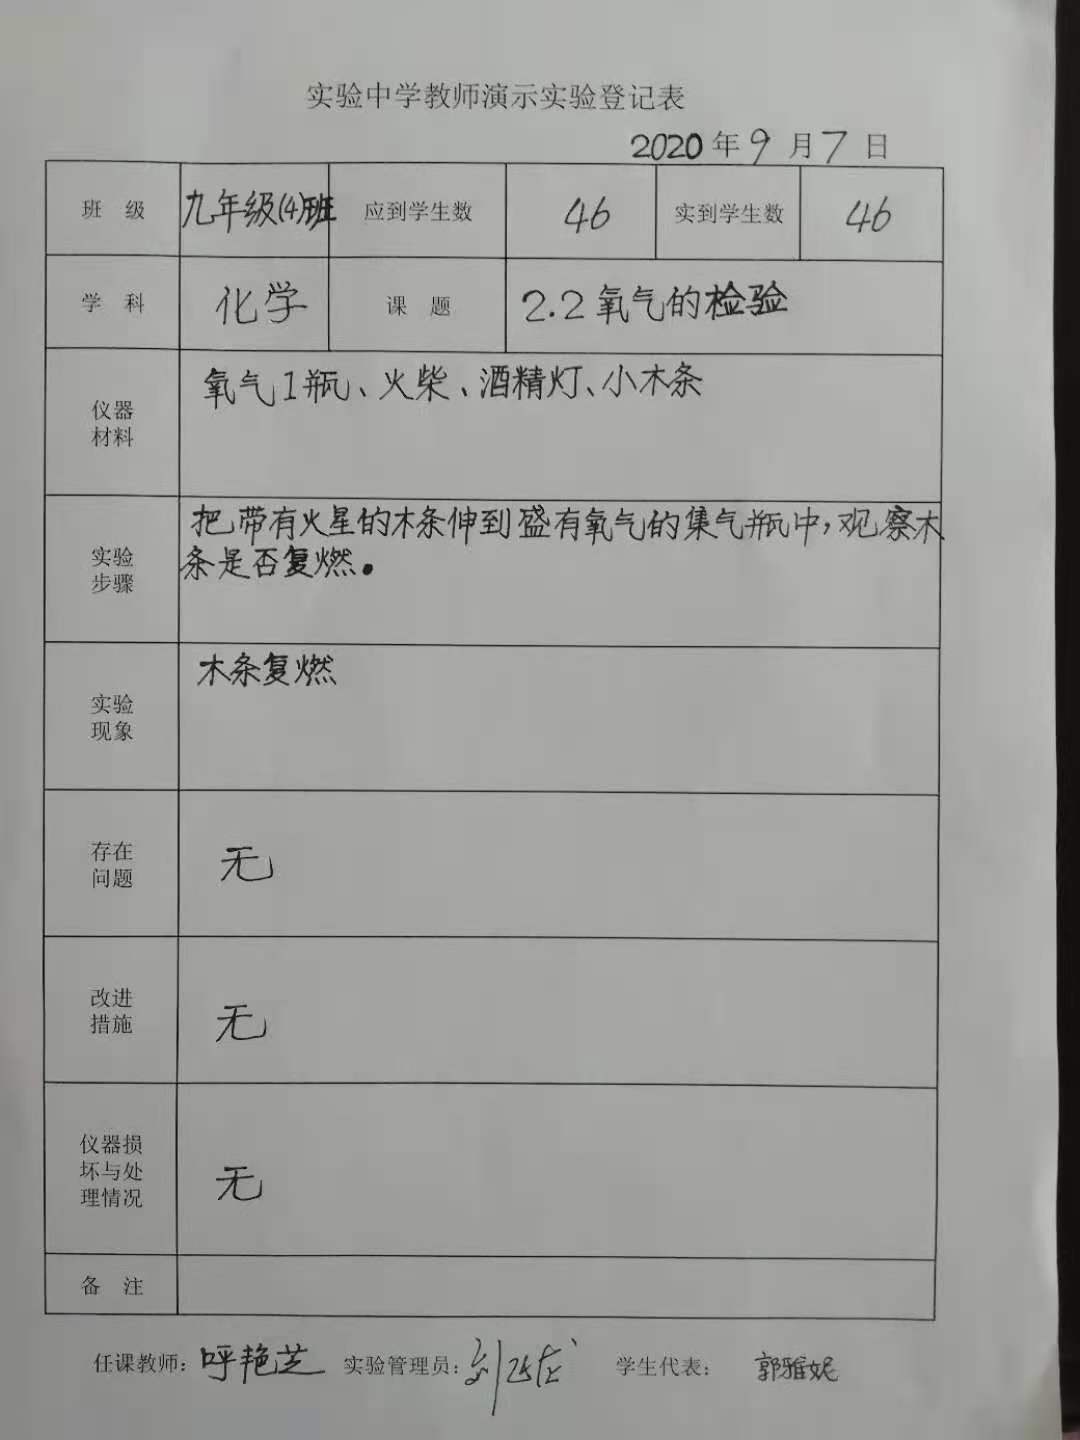 实验中学教师演示实验登记表
2020年9月7日
班 级 九年级(4)班 应到学生数 46 实到学生数 46
学 科 化学 课 题 2.2 氧气的检验
仪器
材料
氧气1瓶、火柴、酒精灯、小木条
实验
步骤
把带有火星的木条伸到盛有氧气的集气瓶中,观察木
条是否复燃。
实验
现象
木条复燃
存在
问题
无
改进
措施
无
仪器损
坏与处
理情况
无
备 注
任课教师: 呼艳芝 实验管理员: 学生代表: 郭雅妮